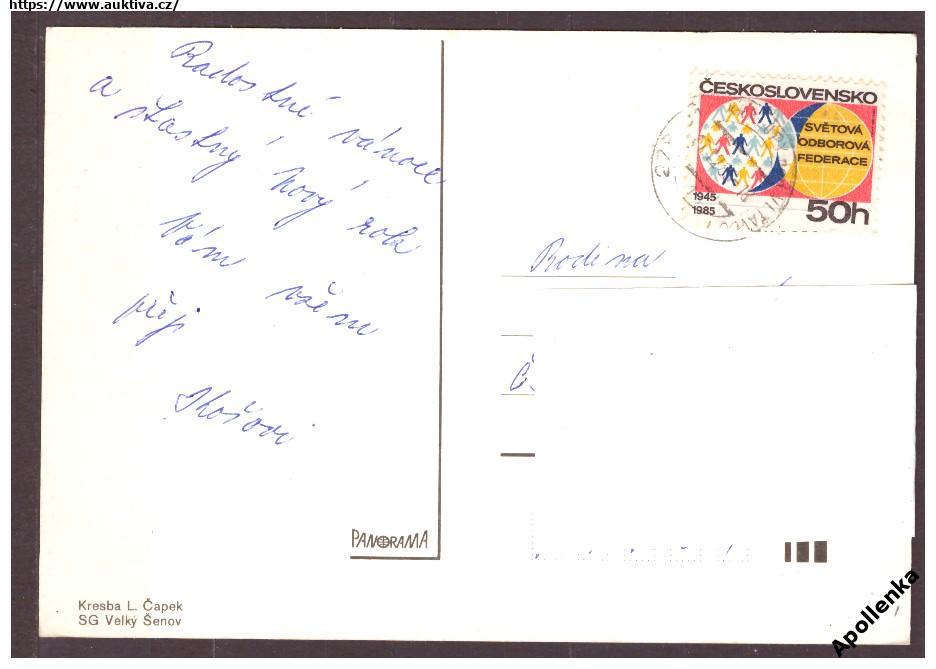 https://www.auktiva.cz/
Radostné vánoce
a šťastný Nový rok
Vám všem
přeji
ČESKOSLOVENSKO
SVĚTOVÁ
ODBOROVÁ
FEDERACE
1945
1985
50h
Rodina
Č.
PANORAMA
Kresba L. Čapek
SG Velký Šenov
Apollenka